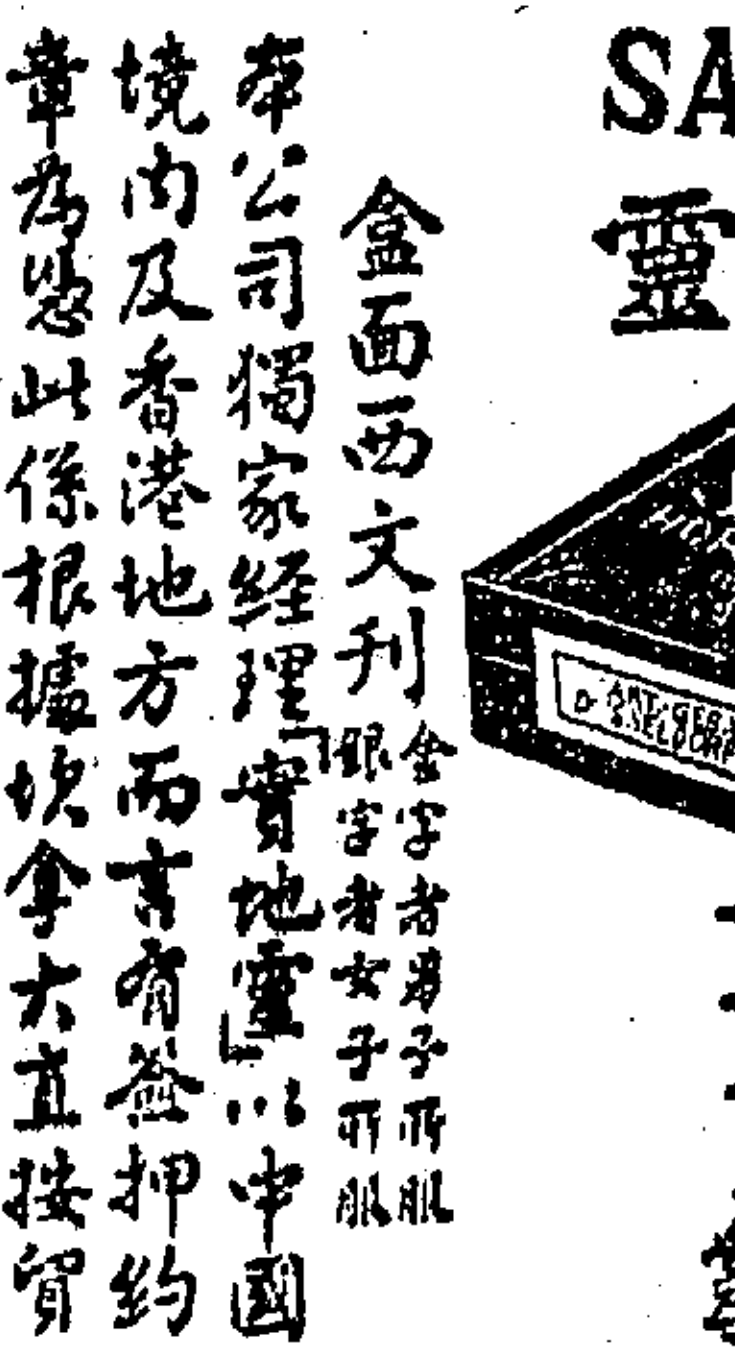 SA
靈
盒面西文刋
金字者男子所服
銀字者女子所服
本公司獨家經理「實地靈」以中國
境內及香港地方而言有簽押約
章為憑此係根據坎拿大直接貿